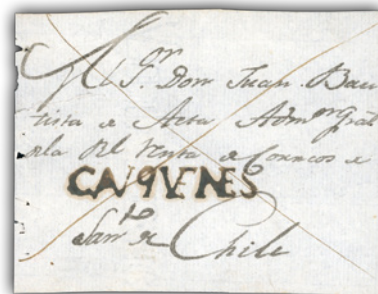 Al S.ᵒʳ Don Juan Bau
tista de Aeta Adm.ᵒʳ Gral
de la Rl. Renta de Correos de
CAVQVENES
Sant.ᵒ de Chile